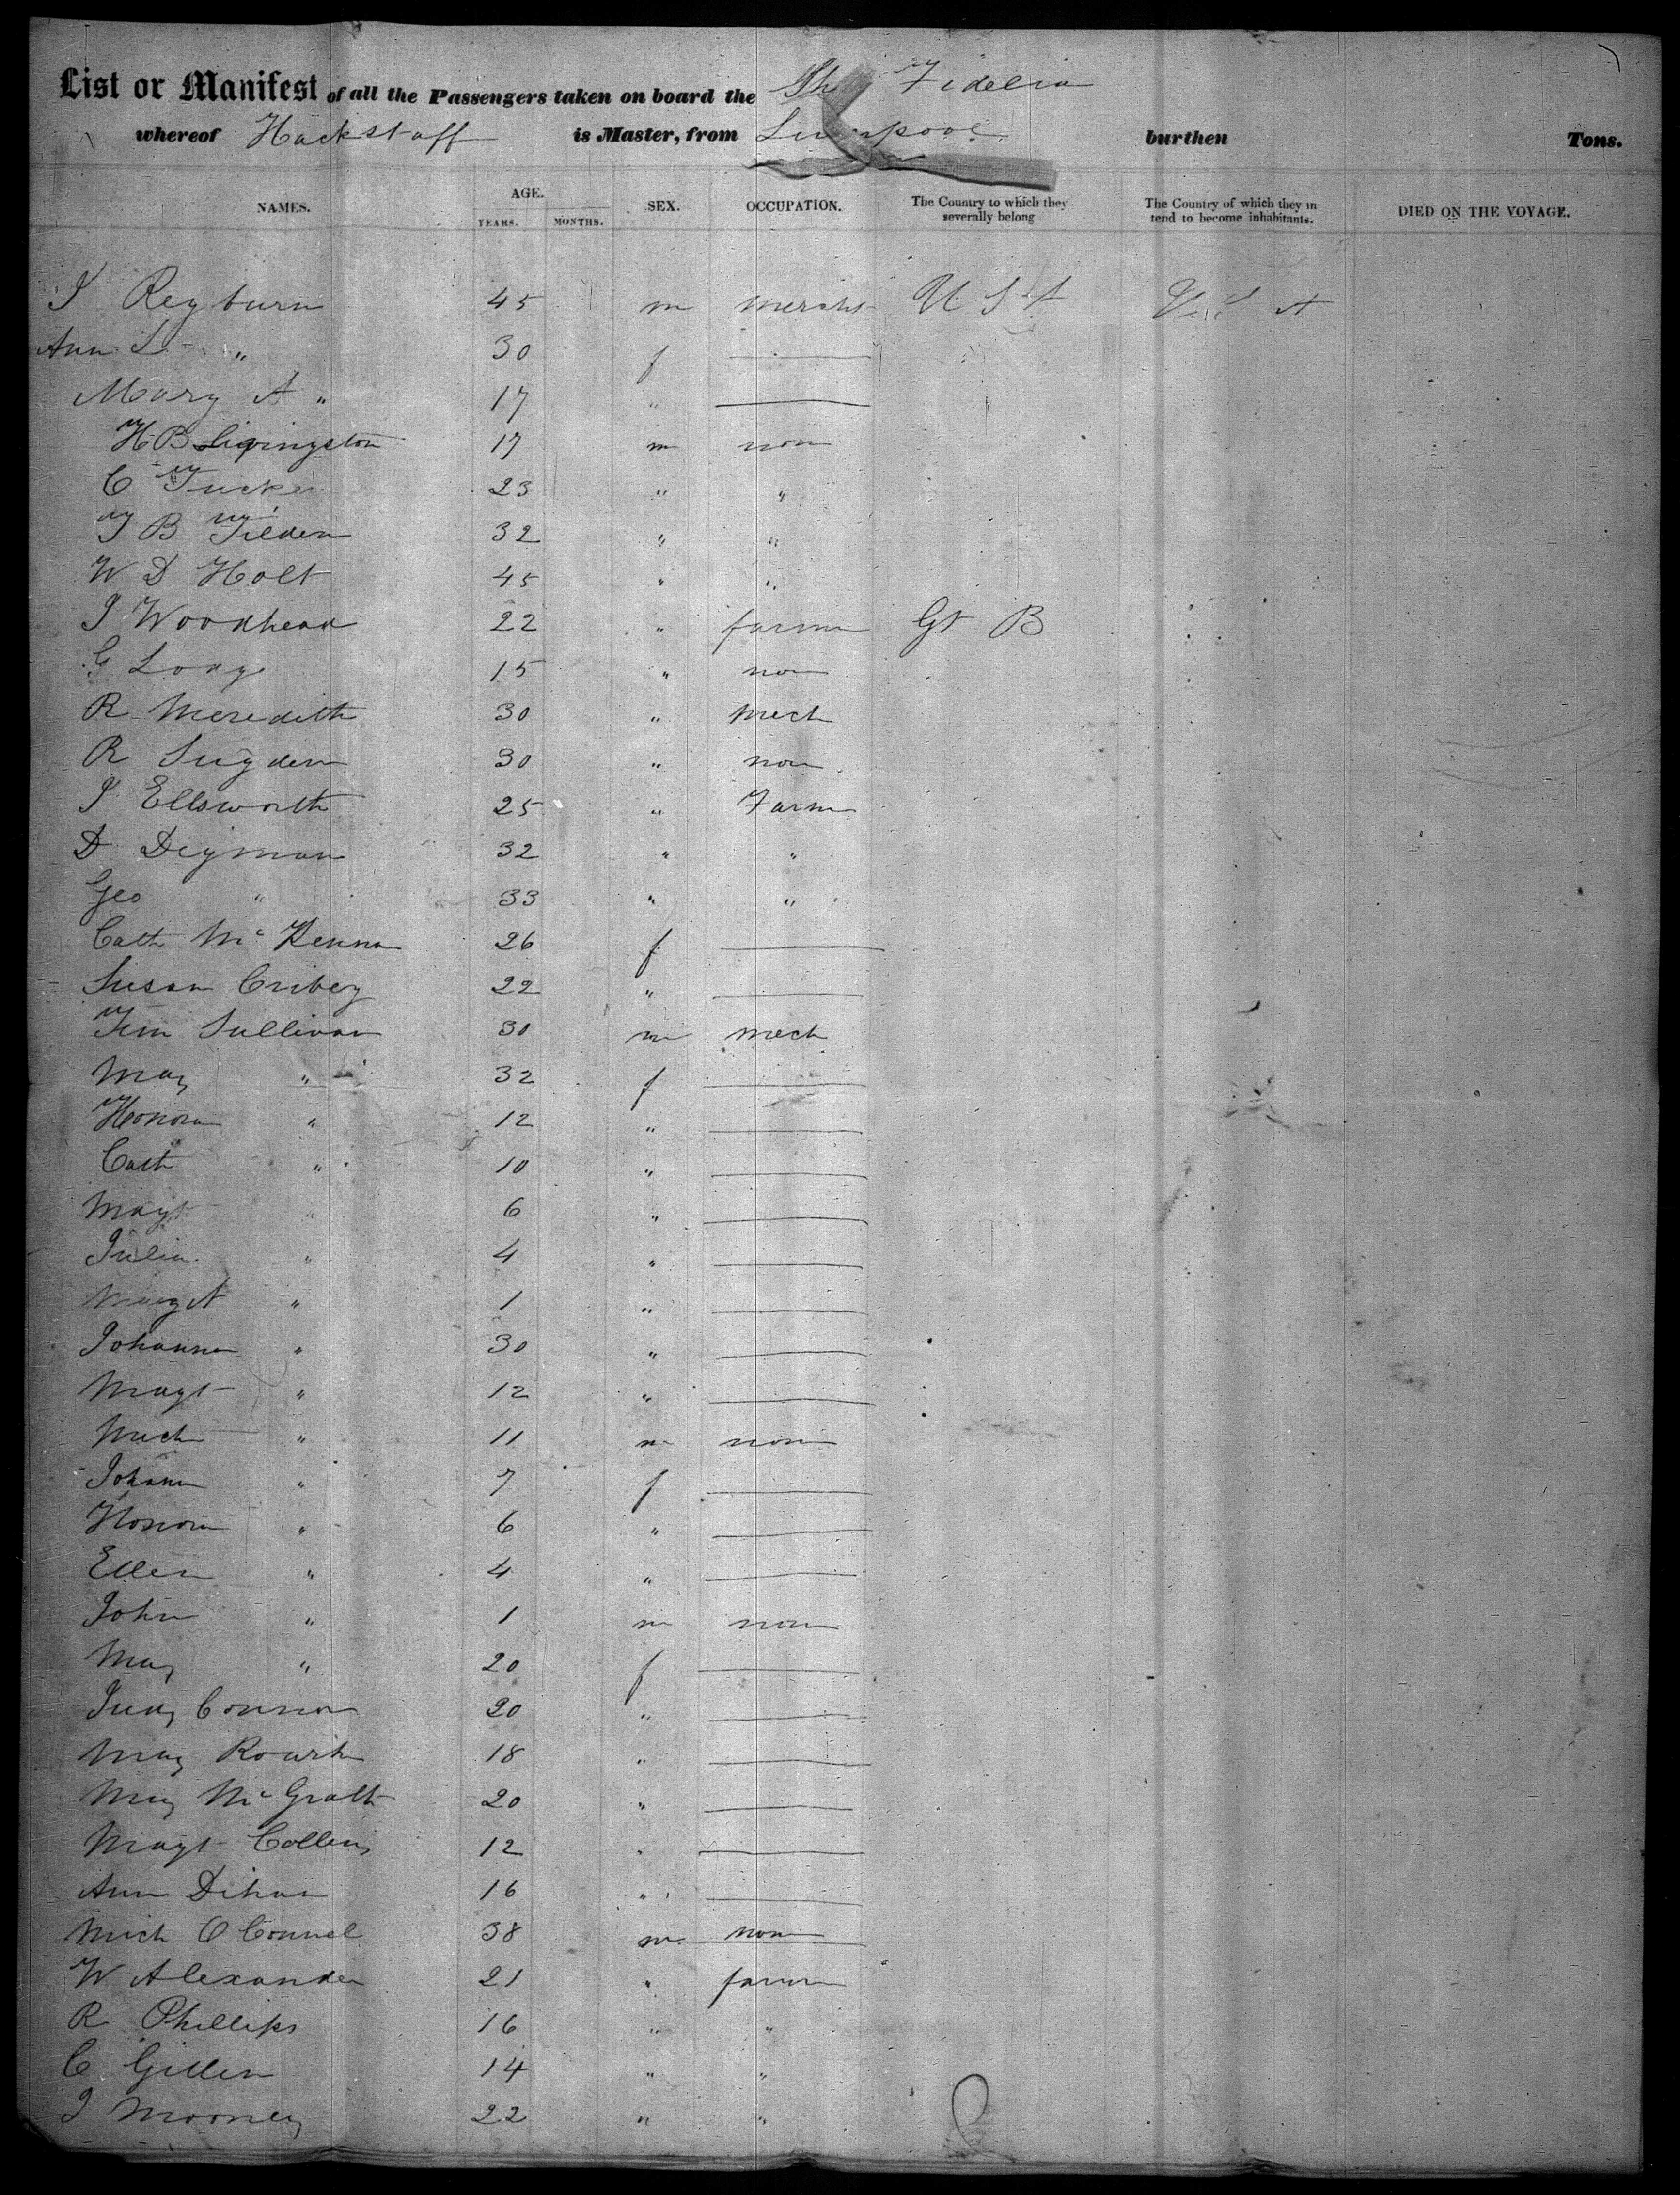 List or Manifest of all the Passengers taken on board the Sh Fidelia
whereof Hackstaff is Master, from Liverpool burthen Tons.
NAMES. AGE. YEARS. MONTHS. SEX. OCCUPATION. The Country to which they severally belong The Country of which they intend to become inhabitants. DIED ON THE VOYAGE.
J Reyburn 45 m Mercht U S A U S A
Ann L " 30 f —
Mary A " 17 " —
H B Livingston 17 m non
C Tucker 23 " "
T B Tilden 32 " "
W D Holt 45 " "
J Woodhead 22 " farm Gt B
G Long 15 " non
R Meredith 30 " Mech
R Sugden 30 " non
J Ellsworth 25 " Farm
D Digman 32 " "
Geo " 33 " "
Cath McKenna 26 f —
Susan Cribey 22 " —
Tim Sullivan 30 m mech
May " 32 f —
Honora " 12 " —
Cath " 10 " —
Magt " 6 " —
Julia " 4 " —
" 1 " —
Johanna " 30 " —
Magt " 12 " —
Mich " 11 m non
Johann " 7 f —
Honora " 6 " —
Ellen " 4 " —
John " 1 m non
May " 20 f —
Judy Connor 20 " —
May Rourk 18 " —
May McGrath 20 " —
Magt Collins 12 " —
Ann Dihan 16 " —
Mich O Connel 38 m non
W Alexander 21 " farm
R Phillips 16 " "
C Gillen 14 " "
J Mooney 22 " "